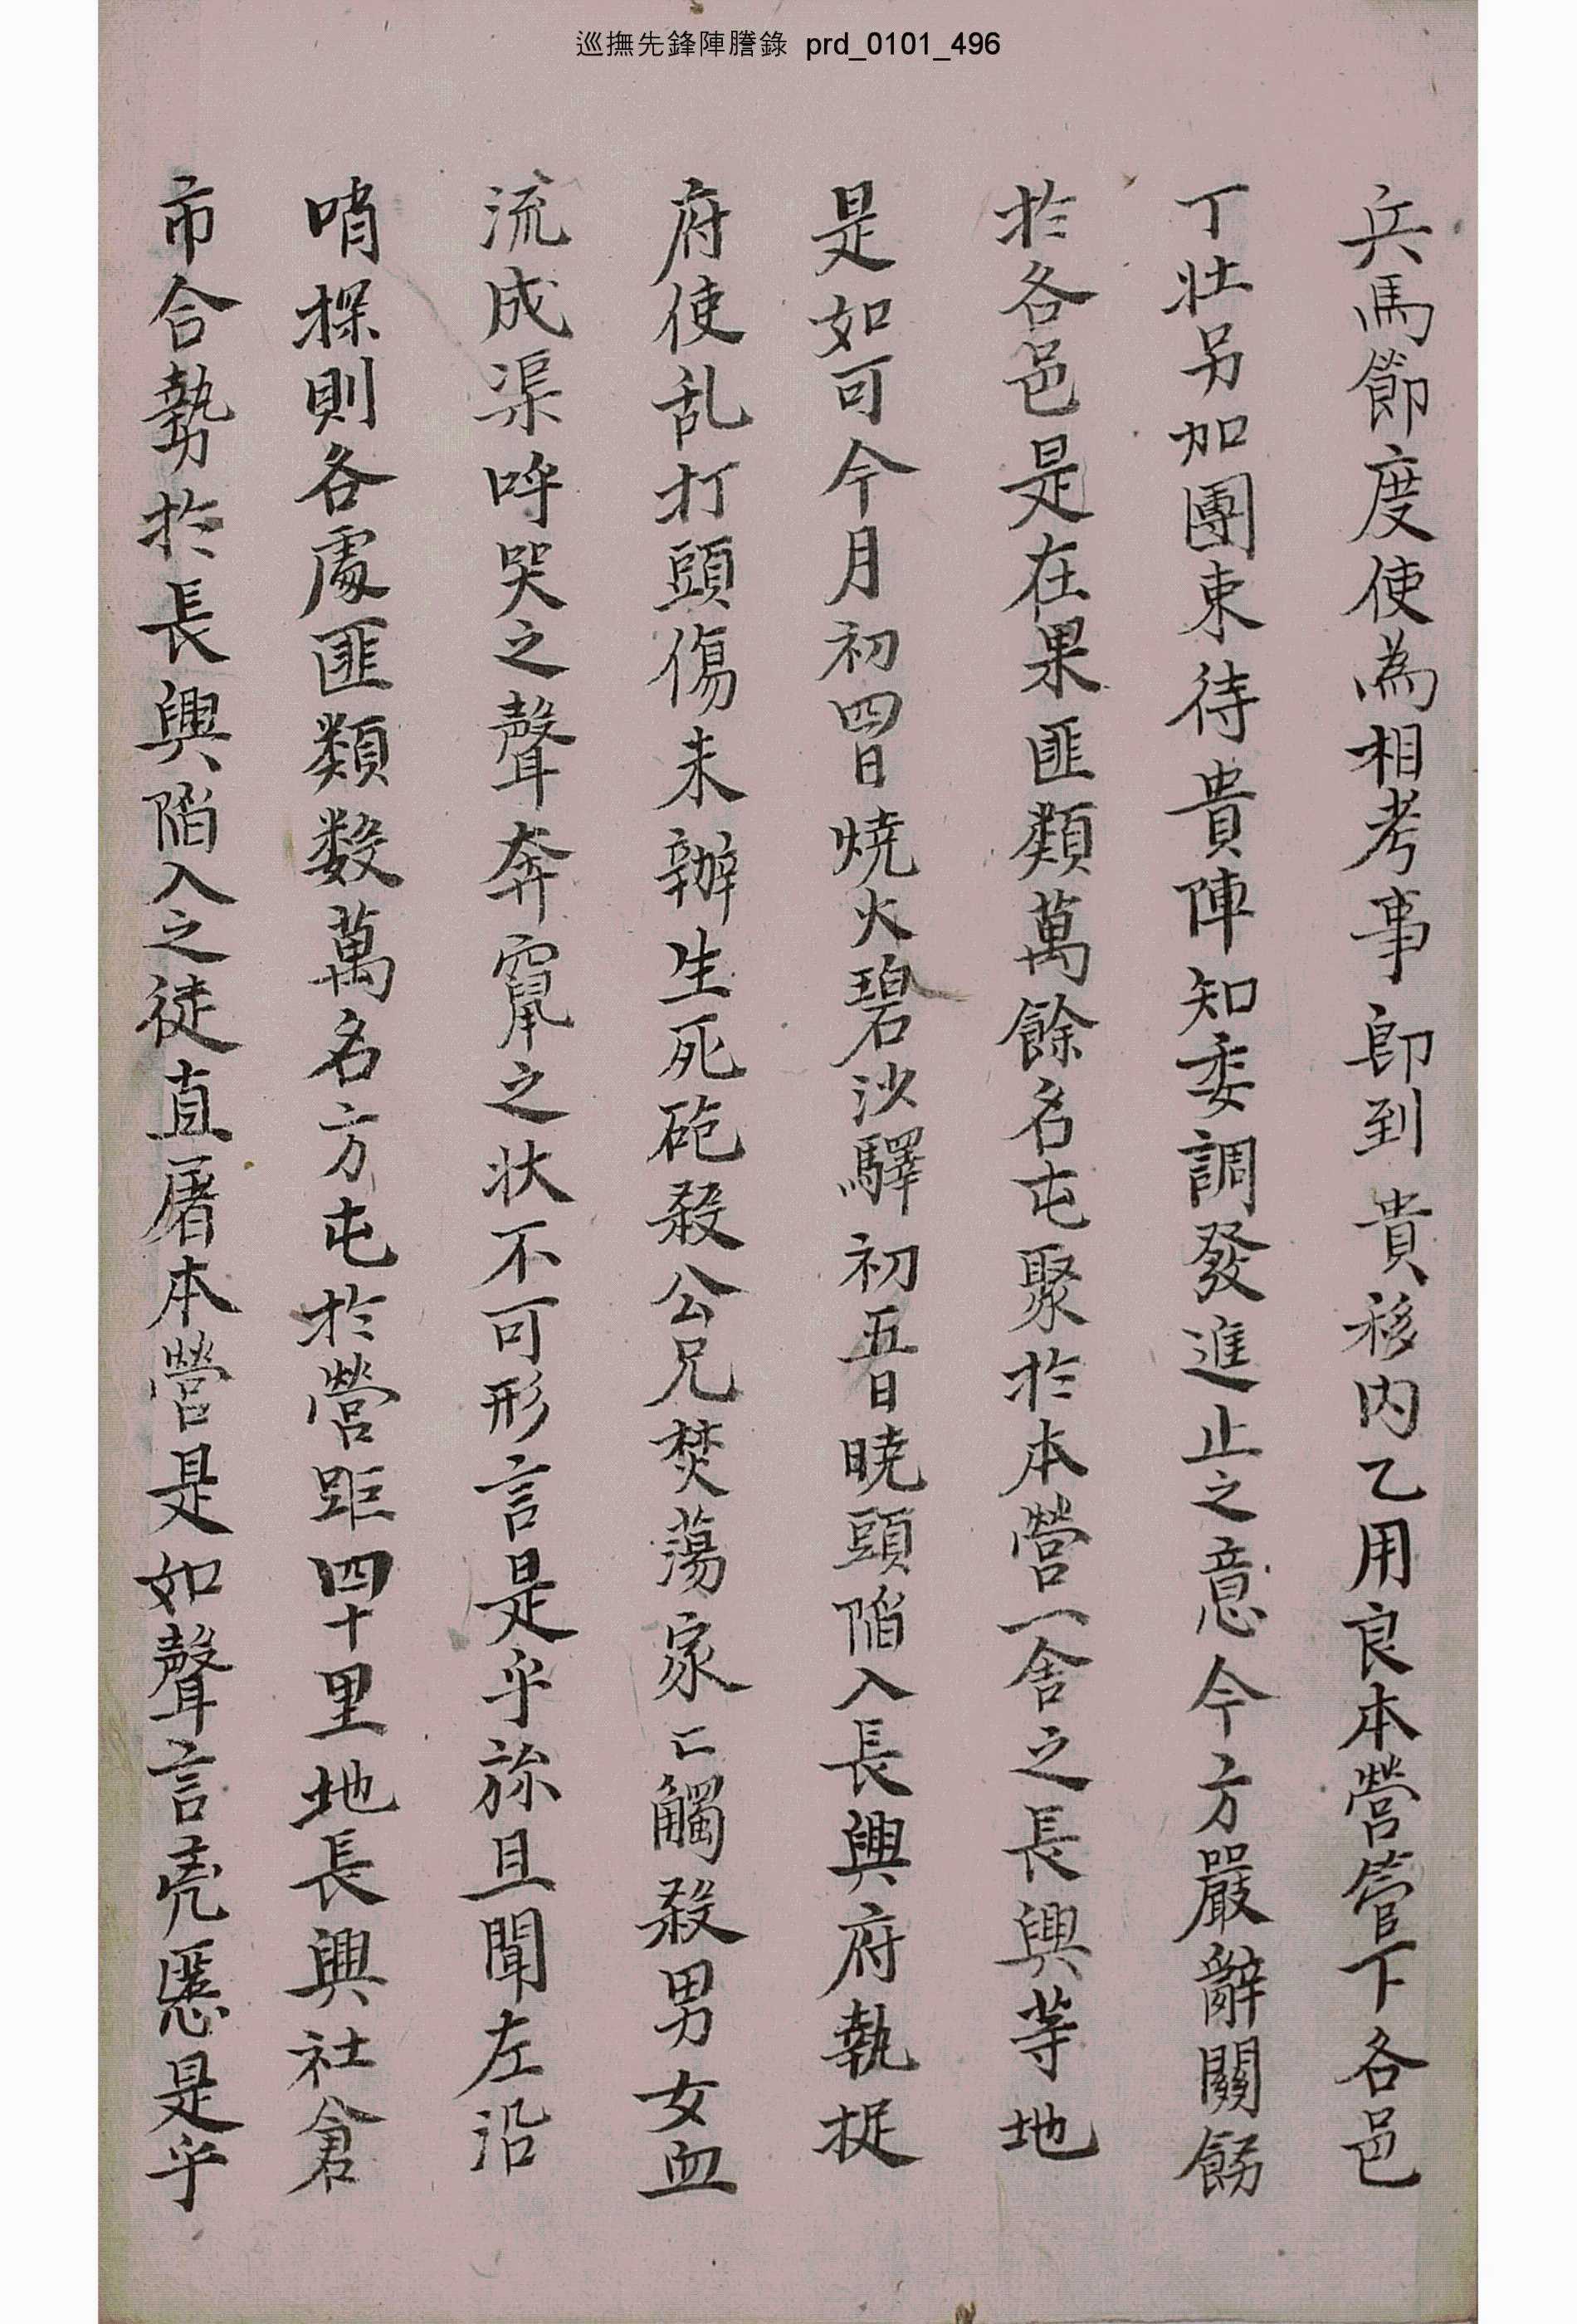 巡撫先鋒陣謄錄 prd_0101_496
兵馬節度使為相考事即到貴移內乙用良本營管下各邑
丁壯另加團束待貴陣知委調發進止之意今方嚴辭關飭
於各邑是在果匪類萬餘名屯聚於本營一舍之長興等地
是如可今月初四日燒火碧沙驛初五日曉頭陷入長興府執捉
府使乱打頭傷未辦生死砲殺公兄焚蕩家亡觸殺男女血
流成渠呼哭之聲奔竄之状不可形言是乎旀且聞左沿
哨探則各處匪類数萬名方屯於營距四十里地長興社倉
市合勢於長興陷入之徒直屠本營是如聲言兇慝是乎